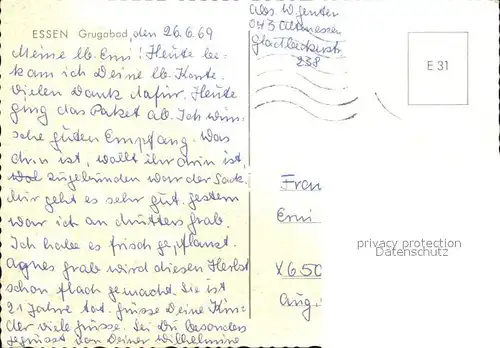 ESSEN Grugabad, den 26.6.69
Meine lb. Erni! Heute be-
kam ich Deine lb. Karte.
Vielen Dank dafür. Heute
ging das Paket ab. Ich wün-
sche guten Empfang. Was
drin ist, wollt ihr drin ist,
zugebunden war der Sack.
Mir geht es sehr gut. gestern
war ich an Mutters grab.
Ich habe es frisch gepflanzt.
Agnes grab wird diesen Herbst
schon flach gemacht. Sie ist
21 Jahre tot. Grüsse Deine Kin-
der viele Grüsse. Sei Du besonders
gegrüsst von Deiner Wilhelmine
Abs. W. Genter
043 Altenessen
Gladbeckerstr.
238
E 31
Frau
Erni
X 650
Aug.
privacy protection
Datenschutz